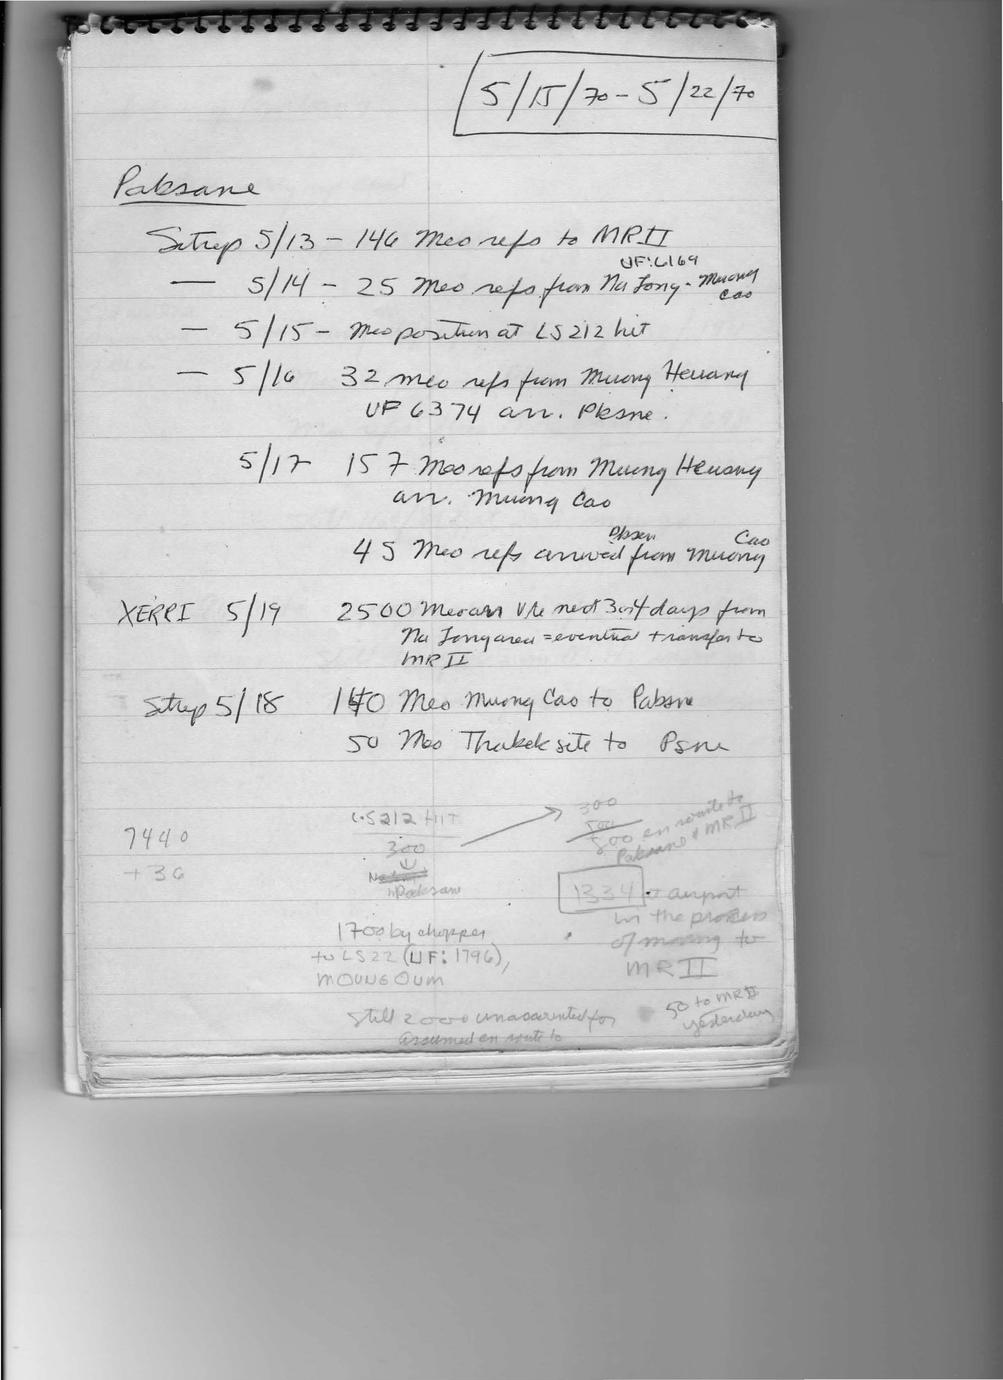 5/15/70 - 5/22/70
Paksane
Sitrep 5/13 - 146 Meo refs to MRII
UF:6169
— 5/14 - 25 Meo refs from Na Tong - Muong
Cao
— 5/15 - Meo position at LS 212 hit
— 5/16 32 meo refs from Muong Heuang
UF 6374 arr. Pksne.
5/17 157 Meo refs from Muong Heuang
arr. Muong Cao
Pksen Cao
45 Meo refs arrived from Muong
XERRI 5/19 2500 Meo arr v/c next 3 or 4 days from
Na Tong area = eventual transfer to
MR II
Sitrep 5/18 140 Meo Muong Cao to Paksne
50 Meo Thakek site to Psne
LS212 HIT
300
7440
+36
300
500
500 en route to
Paksane & MR II
Paksane
1334 airport
in the process
of moving to
MR II
1700 by chopper
to LS22 (UF: 1796),
MOUNG OUM
50 to MR II
yesterday
Still 2000 unaccounted for
assumed en route to